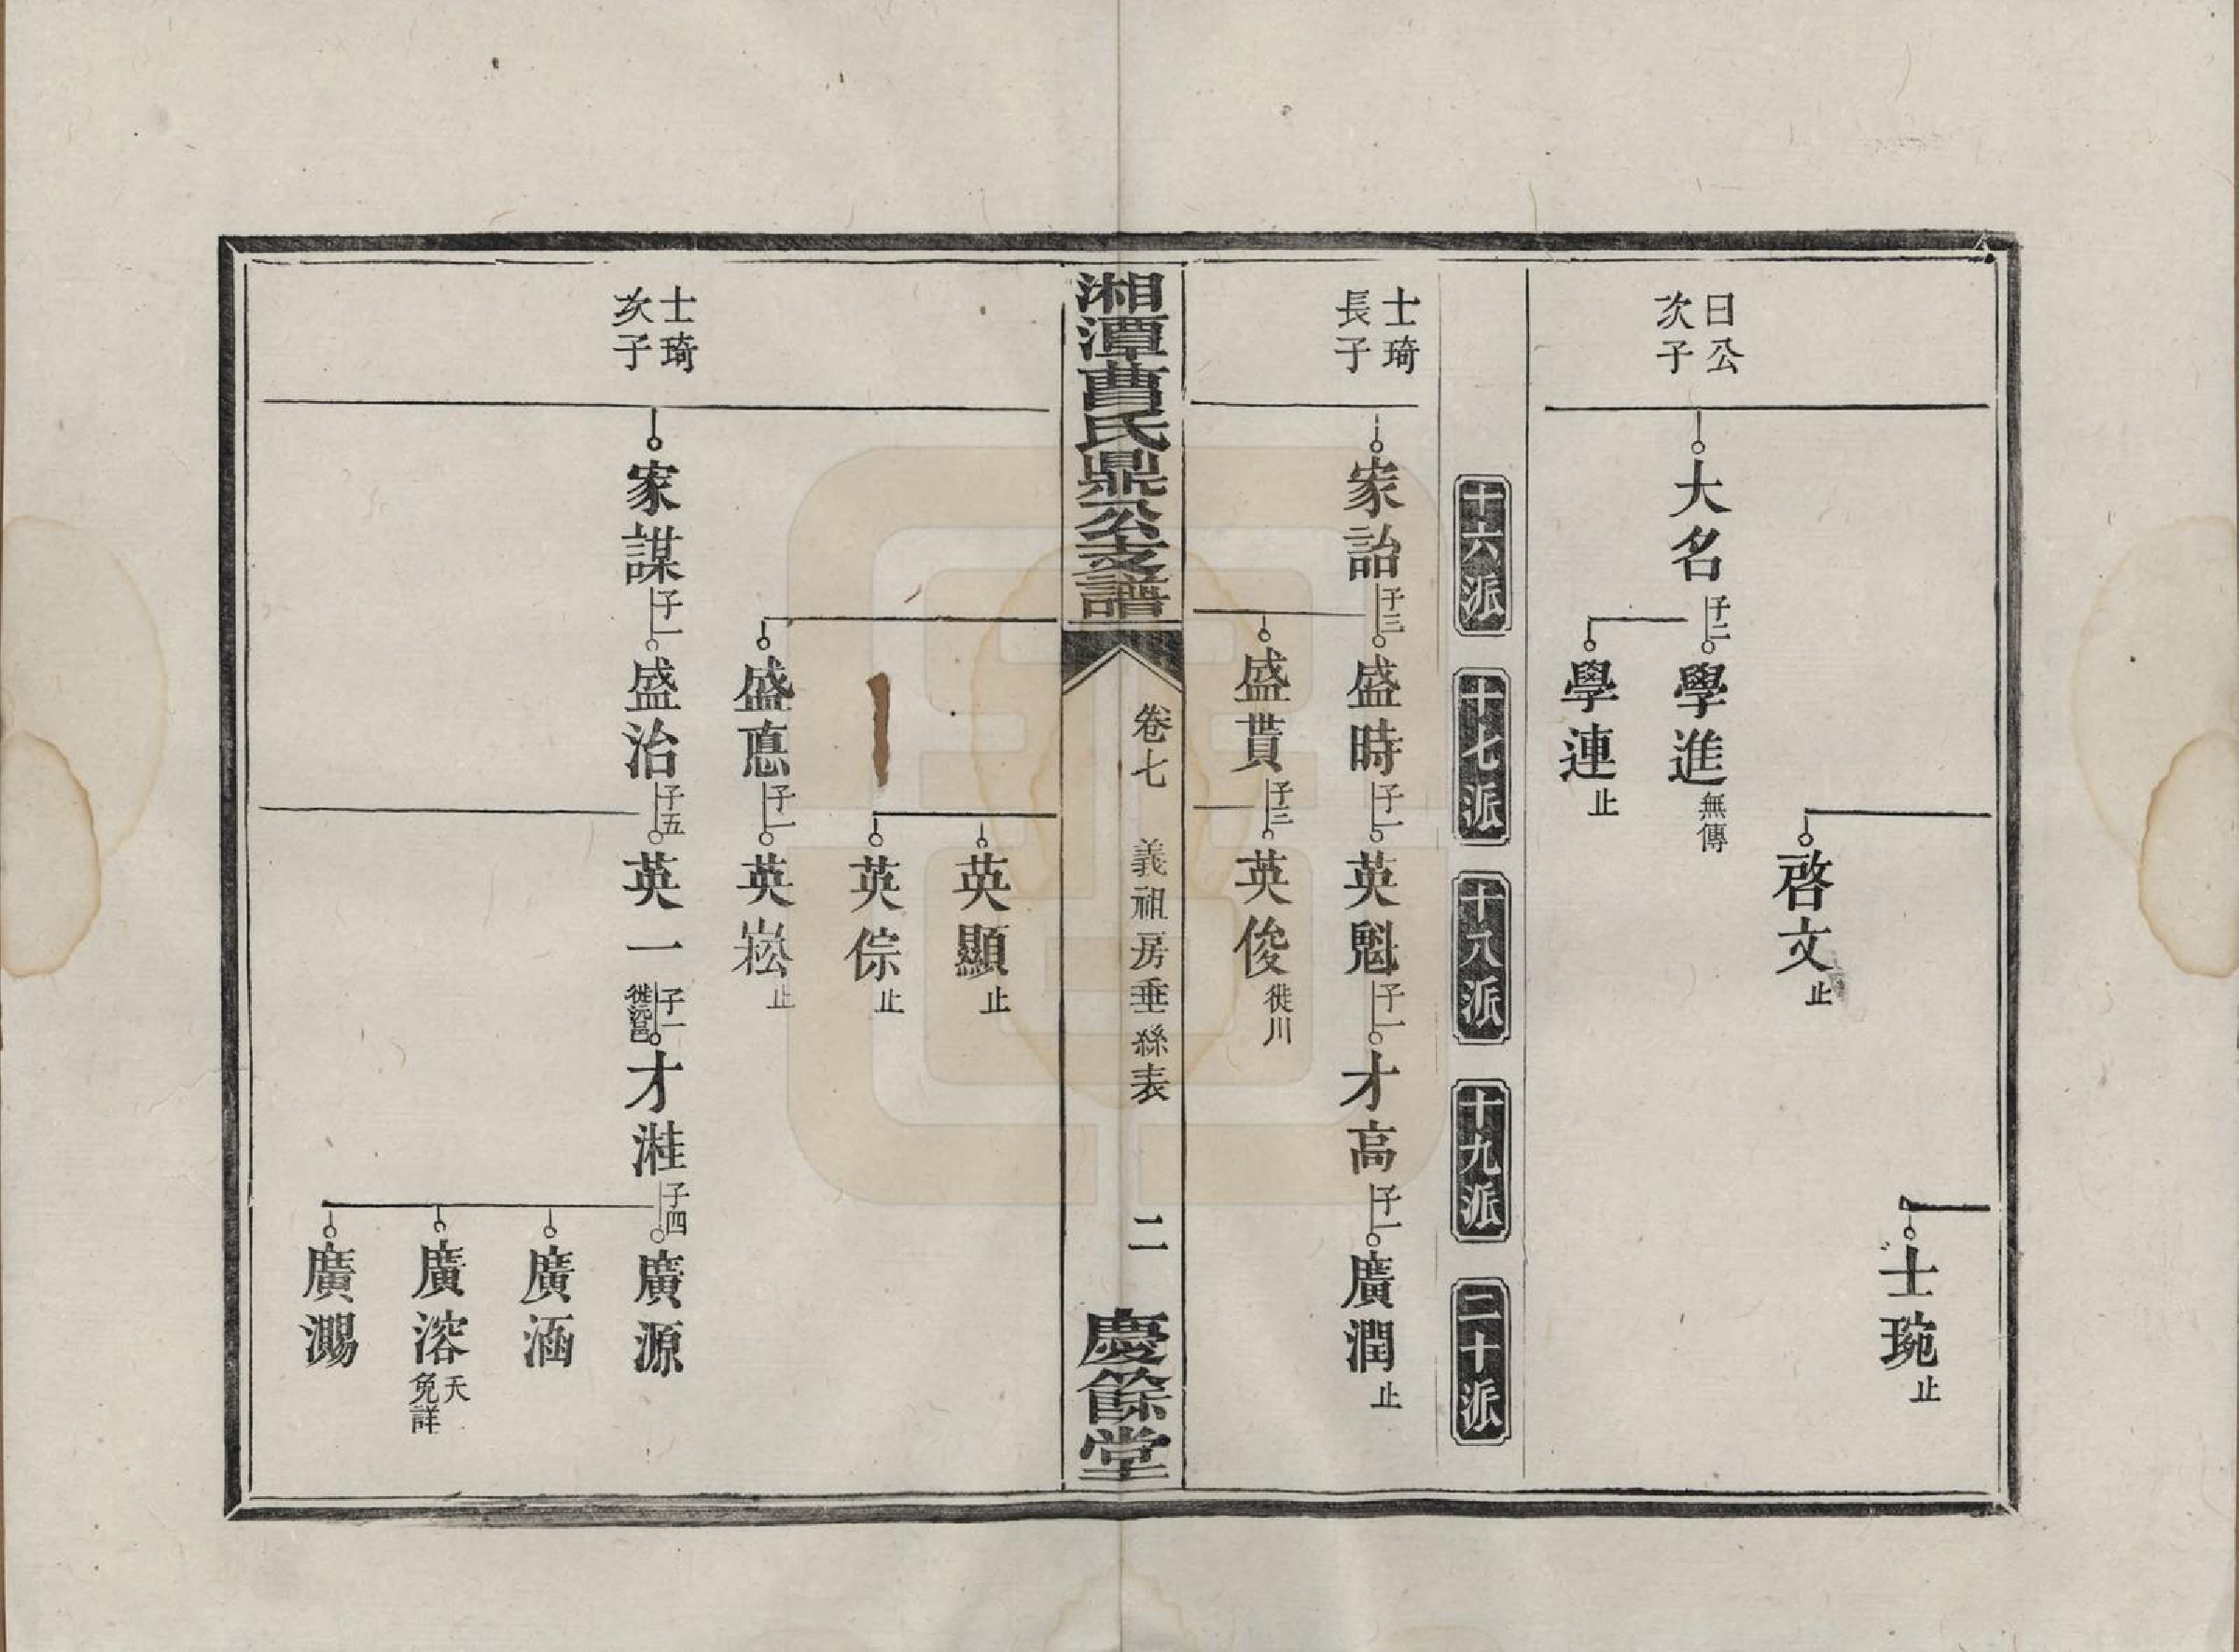 士琬止
啓文止
曰公
次子
大名子二學進無傳
學連止
十六派 十七派 十八派 十九派 二十派
士琦
長子
家詒子三盛時子一英魁子一才高子一廣潤止
盛貰子三英俊徙川
湘潭曹氏鼎公支譜 卷七 義祖房垂絲表 二 慶餘堂
英顯止
英倧止
盛悳子一英崧止
士琦
次子
家謀子一盛治子五英一子一徙沅邑才溎子四廣源
廣涵
廣溶夭免詳
廣㵝